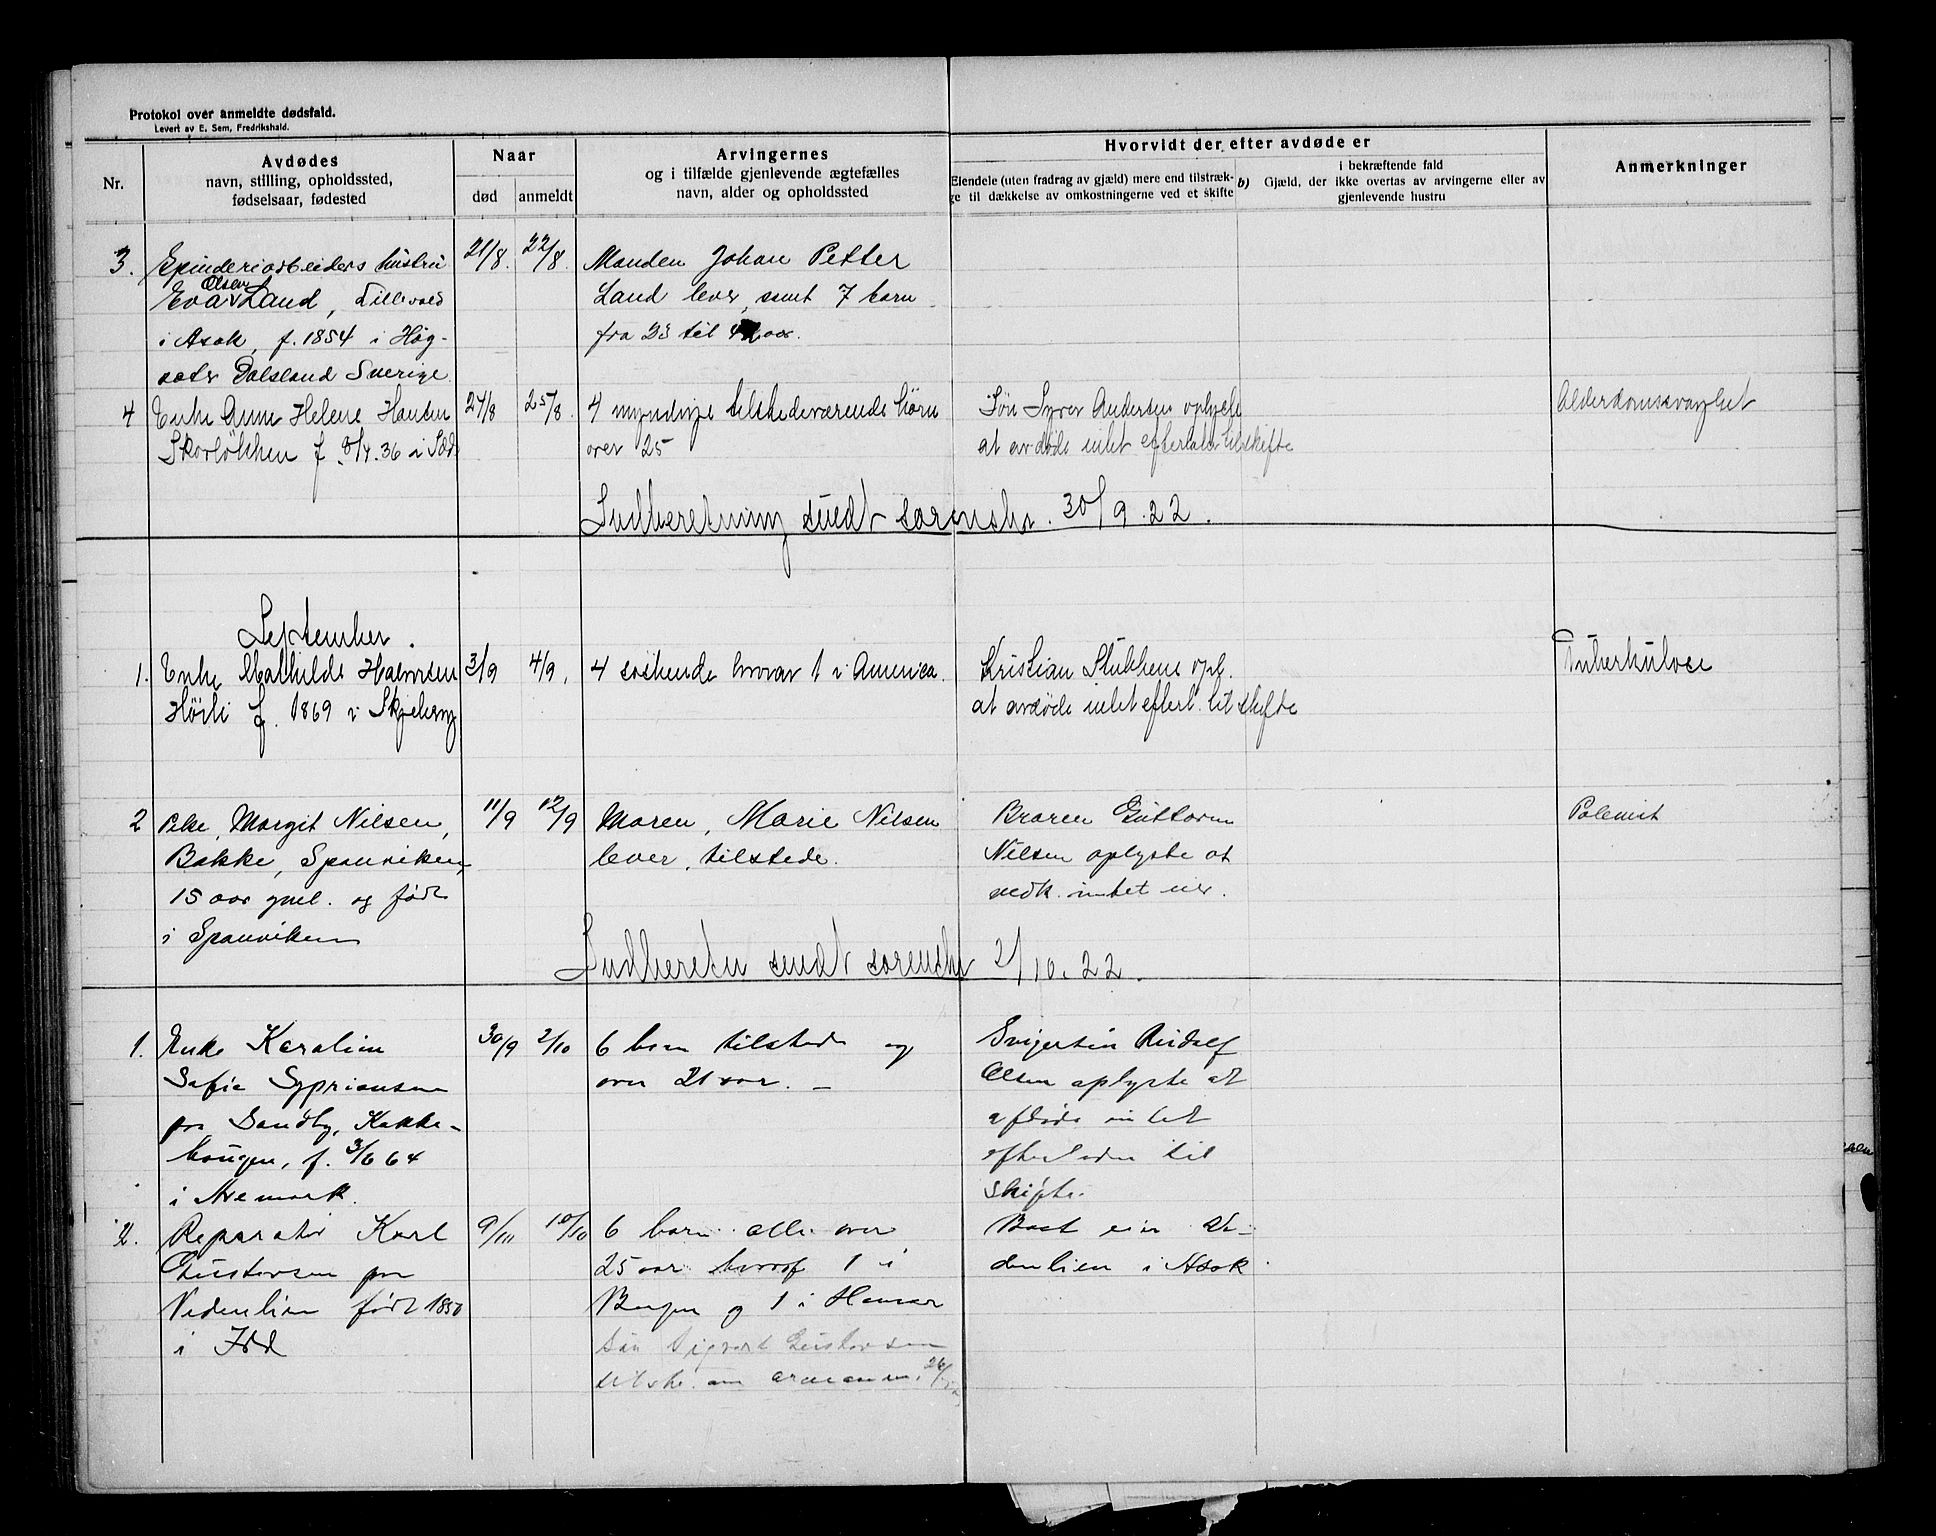 Protokol over anmeldte dødsfald.
Levert av E. Sem, Fredrikshald.
Nr.
Avdødes
navn, stilling, opholdssted,
fødselsaar, fødested
Naar
død
anmeldt
Arvingernes
og i tilfælde gjenlevende ægtefælles
navn, alder og opholdssted
Hvorvidt der efter avdøde er
Eiendele (uten fradrag av gjæld) mere end tilstræk-
ge til dækkelse av omkostningerne ved et skifte
b)
i bekræftende fald
Gjæld, der ikke overtas av arvingerne eller av
gjenlevende hustru
Anmerkninger
3.
Spinderiarbeiders hustru
Olsen
Eva Land, Lillevold
i Asak, f. 1854 i Høg-
sæter Dalsland Sverige
21/8.
22/8.
Manden Johan Petter
Land lever, samt 7 barn
fra 23 til
4
Enke Anne Helene Hansen
f. 36 i
24/8
25/8.
4 myndige tilstedeværende børn
over 25
Søn Syver Andersen oplyste
at avdøde intet efterlater til skifte
Alderdomssvaghet
Indberetning sendt sorenskr. 30/9.22.
September.
1.
Enke Mathilde Halvorsen
Høili f. 1869 i Skjeberg
3/9
4/9.
4 søskende hvorav 1 i America.
Kristian Stubbens opl.
at avdøde intet efterl. til skifte
Tuberkulose
2
Pike, Margit Nilsen,
Bakke, Sponviken,
15 aar gml. og født
i Sponviken
11/9
12/9
Moren, Marie Nilsen
lever, tilstede.
Broren Guttorm
Nilsen oplyste at
vedk. intet eier.
Indberetn sendt sorenskr 2/10.22.
1.
Enke Karoline
Sofie Sypriansen
fra Sandby, Kakke-
haugen, f. 3/6 64
i Aremark.
30/9
2/10
6 barn tilstede og
over 21 aar. -
Svigersøn Rudolf
Olsen oplyste at
afdøde intet
efterlader til
skifte.
2.
Reparatør Karl
Gustavsen fra
Vedenlien født 1850
i Idd
9/10
10/10
6 barn alle over
25 aar hvoraf 1 i
Bergen og 1 i Hamar
Søn Sigvart Gustavsen
26/
Boet eier Ve-
denlien i Asak.